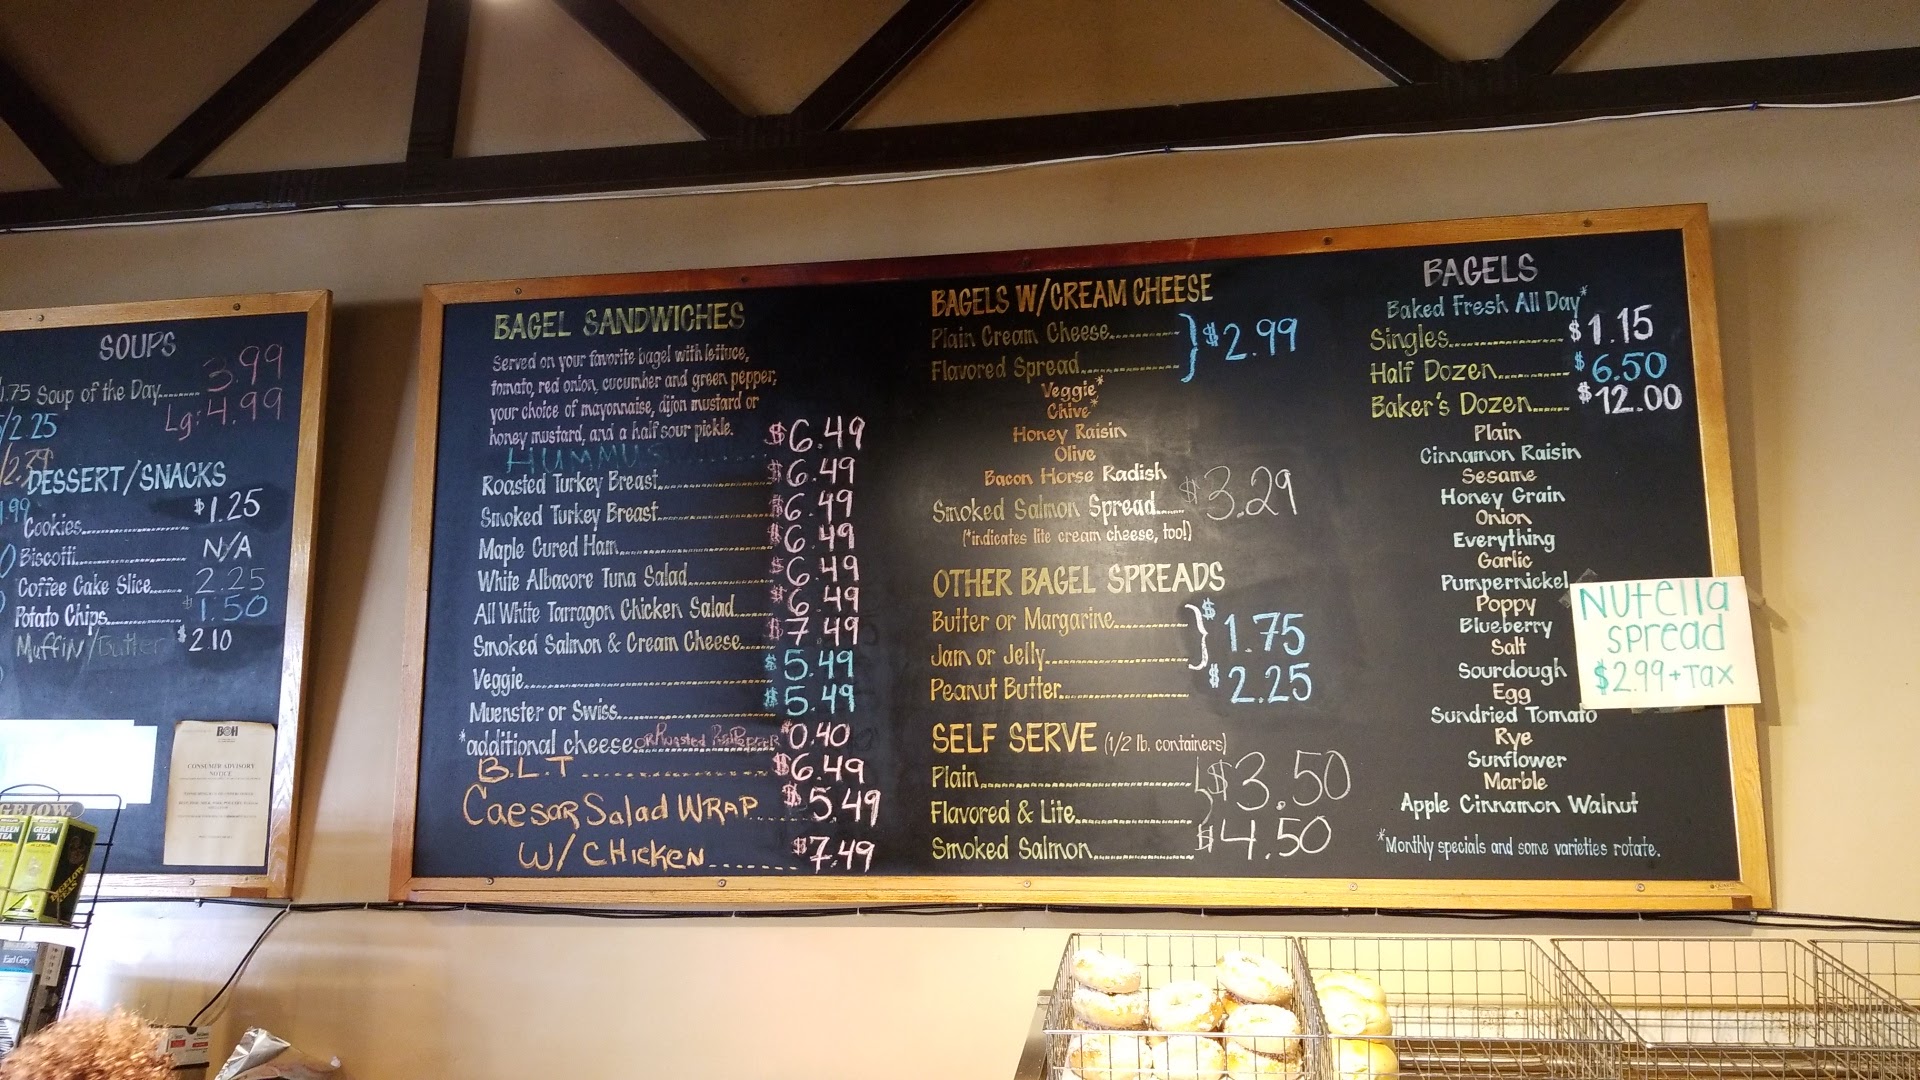 SOUPS
1.75 Soup of the Day........ 3.99
/2.25 Lg: 4.99
DESSERT/SNACKS
Cookies........ $1.25
Biscotti........ N/A
Coffee Cake Slice..... 2.25
Potato Chips........ $1.50
Muffin/Butter $2.10
BOH
CONSUMER ADVISORY
NOTICE
BIGELOW
GREEN TEA
GREEN TEA
Earl Grey
BAGEL SANDWICHES
Served on your favorite bagel with lettuce,
tomato, red onion, cucumber and green pepper,
your choice of mayonnaise, dijon mustard or
honey mustard, and a half sour pickle.
HUMMUS........ $6.49
Roasted Turkey Breast........ $6.49
Smoked Turkey Breast........ $6.49
Maple Cured Ham........ $6.49
White Albacore Tuna Salad........ $6.49
All White Tarragon Chicken Salad..... $6.49
Smoked Salmon & Cream Cheese..... $7.49
Veggie........ $5.49
Muenster or Swiss........ $5.49
*additional cheese or Roasted Red Pepper $0.40
B.L.T ........ $6.49
Caesar Salad WRAP..... $5.49
W/ CHICKEN ........ $7.49
BAGELS W/CREAM CHEESE
Plain Cream Cheese........ } $2.99
Flavored Spread........
Veggie*
Chive*
Honey Raisin
Olive
Bacon Horse Radish
Smoked Salmon Spread..... $3.29
(*indicates lite cream cheese, too!)
OTHER BAGEL SPREADS
Butter or Margarine........ } $1.75
Jam or Jelly........
Peanut Butter........ $2.25
SELF SERVE (1/2 lb. containers)
Plain........ } $3.50
Flavored & Lite........
Smoked Salmon........ $4.50
BAGELS
Baked Fresh All Day*
Singles........ $1.15
Half Dozen........ $6.50
Baker's Dozen..... $12.00
Plain
Cinnamon Raisin
Sesame
Honey Grain
Onion
Everything
Garlic
Pumpernickel
Poppy
Blueberry
Salt
Sourdough
Egg
Sundried Tomato
Rye
Sunflower
Marble
Apple Cinnamon Walnut
*Monthly specials and some varieties rotate.
Nutella
spread
$2.99+Tax